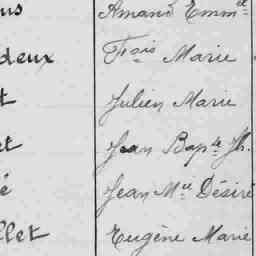 ns Amand Emm.el
deux Fçois Marie
t Julien Marie
et Jean Bap.te Jh.
é Jean M.ie Désiré
llet Eugène Marie